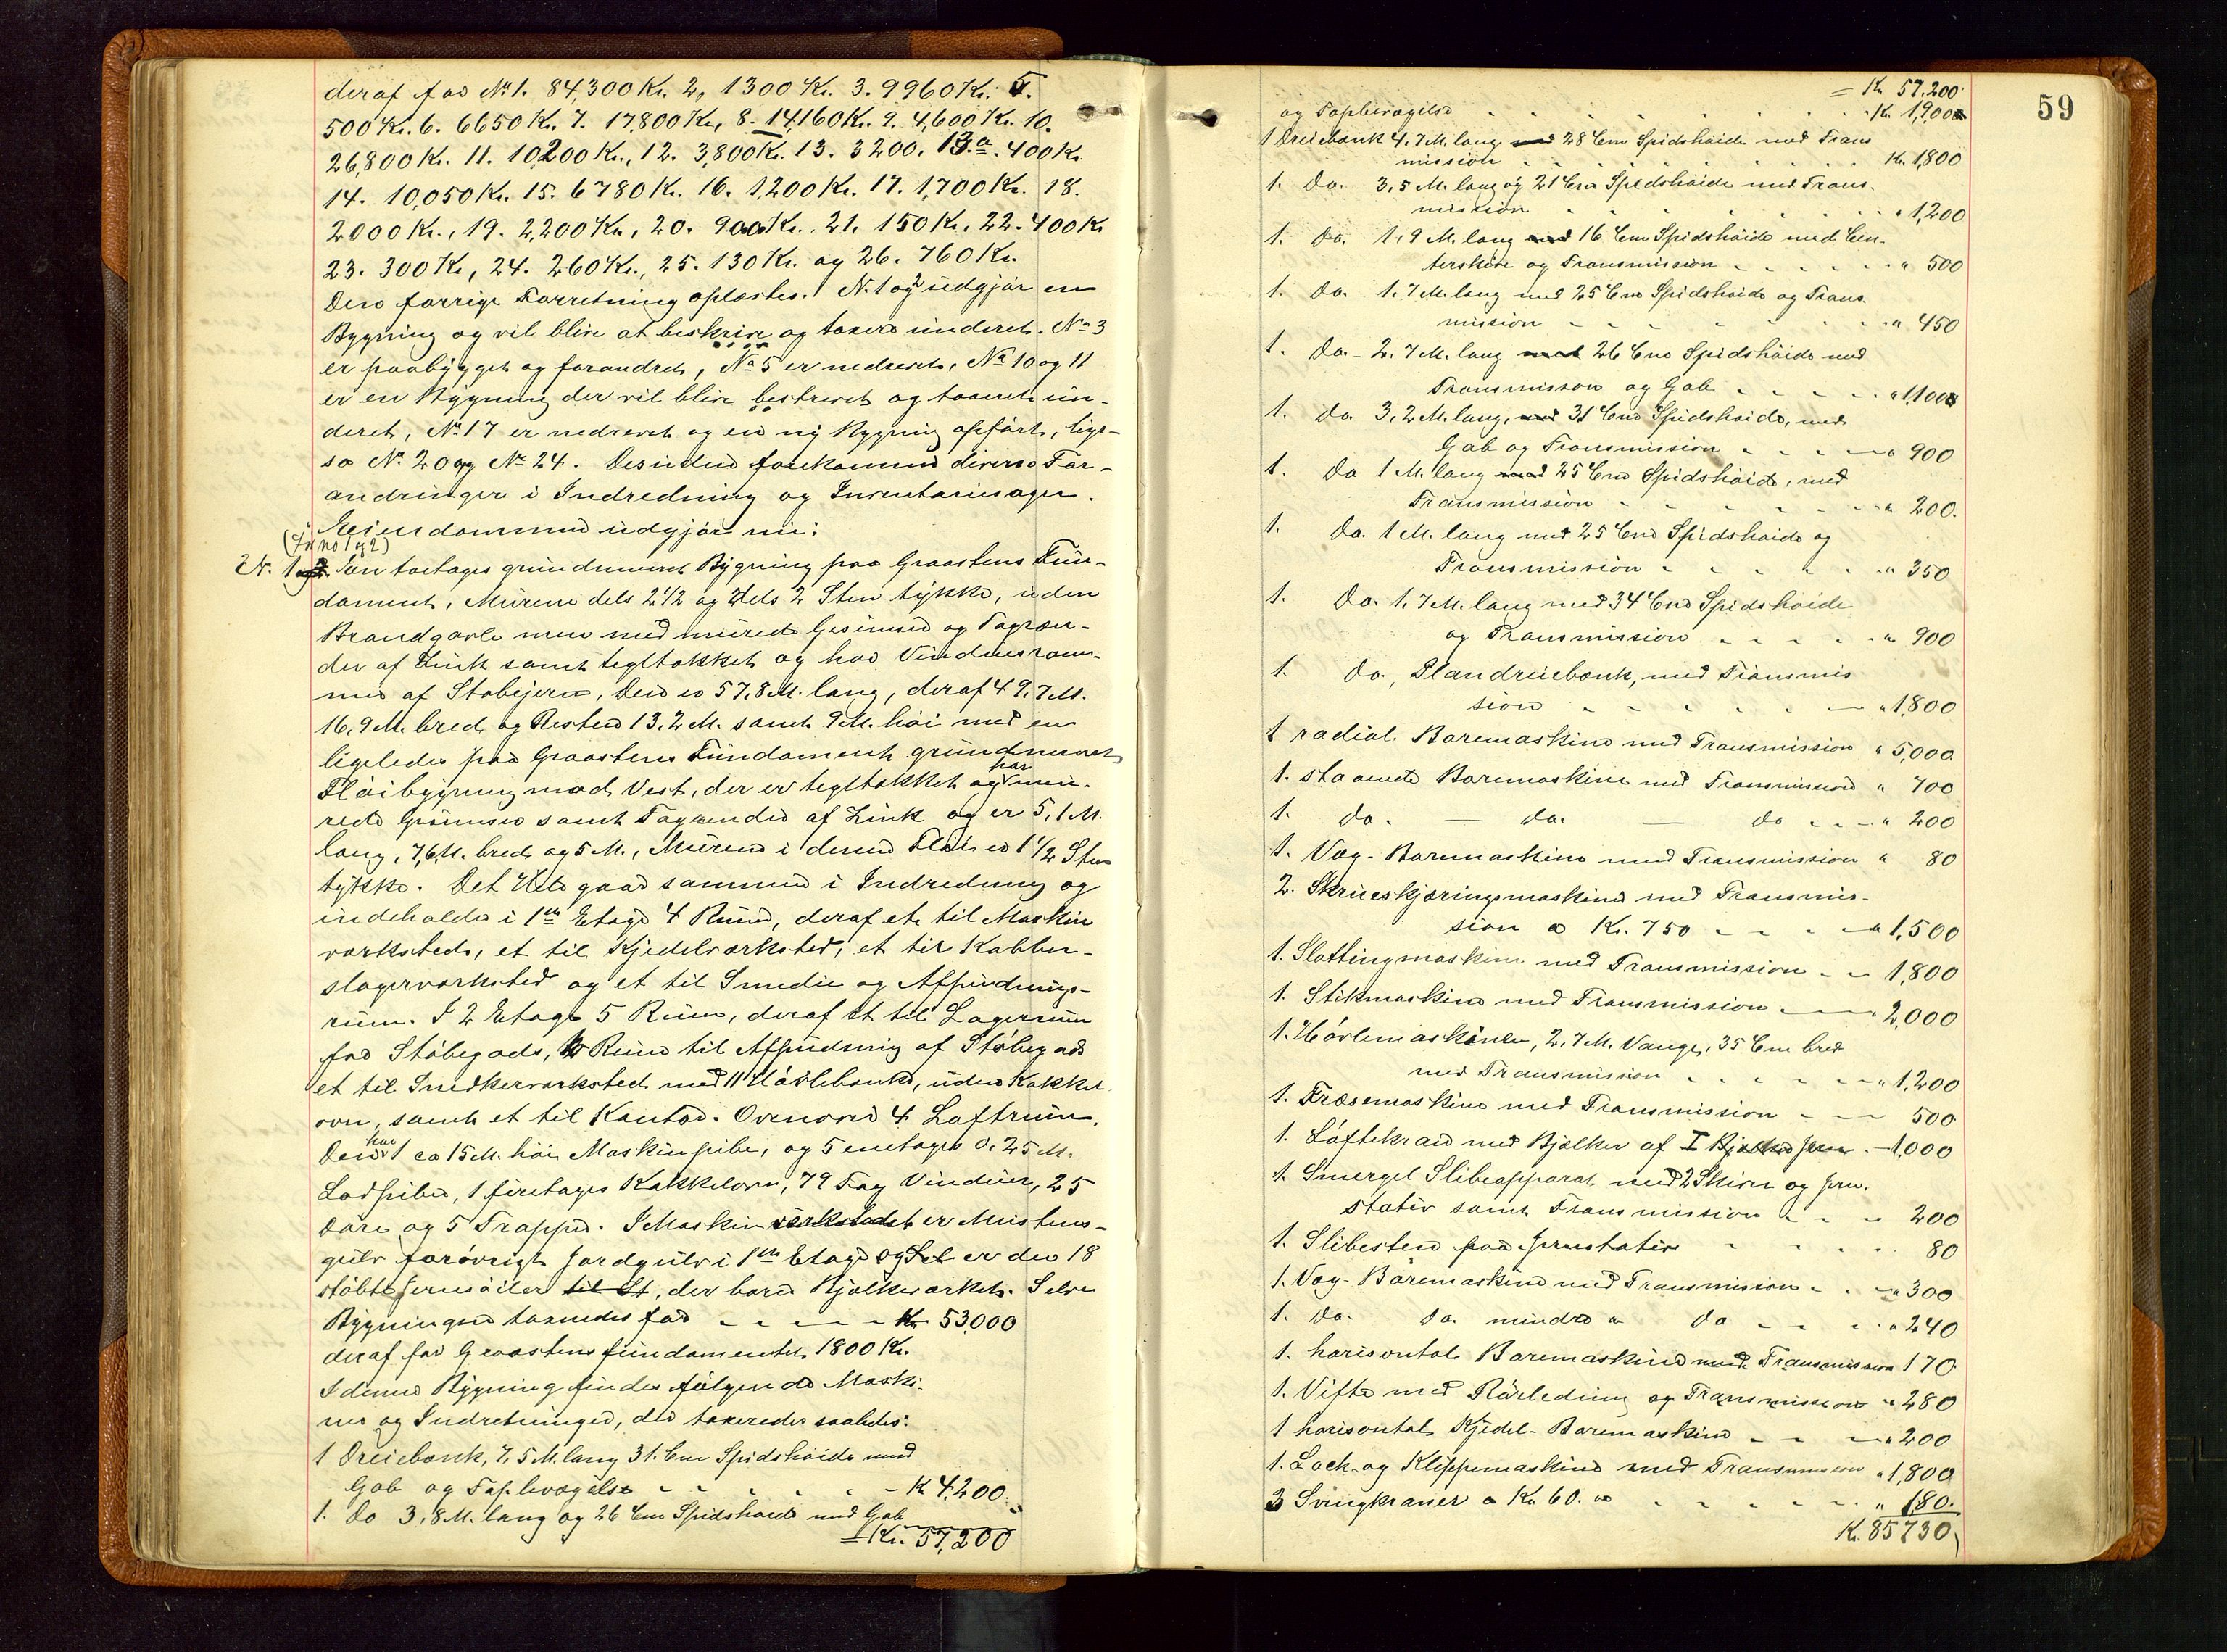 deraf for No 1. 84,300 Kr. 2, 1300 Kr. 3. 9960 Kr. 5.
500 Kr. 6. 6650 Kr. 7. 17,800 Kr, 8. 14,160 Kr. 9. 4,600 Kr. 10.
26,800 Kr. 11. 10,200 Kr., 12. 3,800 Kr. 13. 3200. 13.a. 400 Kr.
14. 10,050 Kr. 15. 6780 Kr. 16. 1,200 Kr. 17. 1,700 Kr. 18.
2000 Kr., 19. 2,200 Kr, 20. 900 Kr. 21. 150 Kr. 22. 400 Kr
23. 300 Kr, 24. 260 Kr., 25. 130 Kr. og 26. 760 Kr.
Den forrige Forretning oplæstes. N. 1 og 2 udgjør en
Bygning og vil blive at beskrive og taxere underet. No 3
er paabygget og forandret, No 5 er nedrevet, No 10 og 11
er en Bygning der vil blive beskrevet og taxeret un-
deret, No 17 er nedrevet og en ny Bygning opført, lige-
saa No 20 og No 24. Desuden forekommer diverse For-
andringer i Indredning og Inventariesager.
Eiendommen udgjør nu:
(Før no 1 og 2)
N. 1 En toetages grundmuret Bygning paa Graastens Fun-
dament, Murene dels 2 1/2 og dels 2 Sten tykke, uden
Brandgavle men med murede Gesimser og Tagren-
der af Zink samt tegltækket og har Vinduesram-
mer af Støbejern, Den er 57,8 M. lang, deraf 49,7 M.
16,9 M. bred og Resten 13,2 M. samt 9 M. høi med en
ligeledes paa Graastens Fundament grundmuret
Fløibygning mod Vest, der er tegltækket og har mu-
rede Gesimser samt Tagrender af Zink og er 5,1 M.
lang, 7,6 M. bred og 5 M., Murene i denne Fløi er 1 1/2 Sten
tykke. Det Hele gaar sammen i Indredning og
indeholder i 1ste Etage 4 Rum, deraf et til Maskin
værksted, et til Kjedelværksted, et til Kobber-
slagerværksted og et til Smedie og Afpudsnings-
rum. I 2 Etage 5 Rum, deraf et til Lagerrum
for Støbegods, 2 Rum til Afpudsning af Støbegods
et til Snedkerværksted med 11 Høvlebænke, uden Kakkel
ovn, samt et til Kontor. Ovenover 4 Loftrum.
Den har 1 ca 15 M. høi Maskinpibe, og 5 enetages 0,25 M.
Lodpiber, 1 firetages Kakkelovn, 79 Fag Vinduer, 25
Døre og 5 Trapper. I Maskinværkstedet er Murstens-
gulv forøvrigt Jordgulv i 1ste Etage og der er der 18
støbte Jernsøiler, der bærer Bjelkeværket. Selve
Bygningen taxeredes for - - - - Kr 53,000
deraf for Graastensfundamentet 1800 Kr.
I denne Bygning findes følgende Maski-
ner og Indretninger, der taxeredes saaledes:
1 Dreiebænk, 7,5 M. lang 31. Cm Spidshøide med
Gab og Topbevægelse - - - - - K 4,200.
1. Do 3,8 M. lang og 26 Cm Spidshøide med Gab
= Kr. 57,200
59
= Kr 57,200
og Topbevægelse - - - - - - Kr. 1,900
1 Dreiebænk 4,7 M. lang 28 Cm Spidshøide med Trans
mission - - - - - - Kr. 1,800
1. Do. 3,5 M. lang og 21 Cm Spidshøide med Trans.
mission - - - - - - " 1,200
1. Do. 1,9 M. lang 16 Cm Spidshøide med Cen-
terskive og Transmission - - - - - " 500
1. Do. 1,7 M. lang med 25 Cm Spidshøide og Trans.
mission - - - - - - " 450
1. Do - 2,7 M. lang 26 Cm Spidshøide med
Transmission og Gab - - - - " 1,100
1. Do 3,2 M. lang, 31 Cm Spidshøide, med
Gab og Transmission - - - - " 900
1. Do 1 M. lang 25 Cm Spidshøide, med
Transmission - - - - - - " 200.
1. Do. 1 M. lang med 25 Cm Spidshøide og
Transmission - - - - - " 350
1. Do. 1,7 M. lang med 34 Cm Spidshøide
og Transmission - - - - - " 900
1. Do., Plandreiebænk, med Transmis
sion - - - - - - " 1,800
1 radial. Boremaskine med Transmission " 5,000.
1. staaende Boremaskine med Transmission " 700
1. do. — do. — do - - - " 200
1. Væg-Boremaskine med Transmission " 80
2. Skrueskjæringsmaskiner med Transmis-
sion a Kr. 750 - - - - " 1,500
1. Slottingmaskine med Transmission - - 1,800
1. Stikmaskine med Transmission - - - 2,000
1. Høvlemaskine, 2,7 M. Vange, 35 Cm bred
med Transmission - - - - - " 1,200
1. Fræsemaskine med Transmission - - 500
1. Løftekran med Bjelker af I Bjelke Jern. - 1,000
1. Smergel Slibeapparat med 2 Skiver og Jern.
stativ samt Transmission - - - 200
1. Slibesten paa Jernstativ - - - - 80
1. Væg-Boremaskine med Transmission - - " 300
1. Do. Do. mindre " Do - - - " 240
1. horisontal Boremaskine med Transmission 170
1. Vifte med Rørledning og Transmission " 280
1 horisontal Kjedel-Boremaskine - - - " 200
1. Lock- og Klippemaskine med Transmission " 1,800
3 Svingkraner a Kr. 60. - - - - - " 180.
Kr. 85730